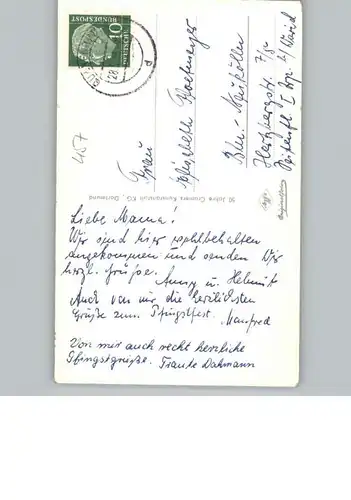 10
DEUTSCHE
BUNDESPOST
457
Frau
Elisabeth
Bln.-Neukölln
Hertzbergstr. 7/8
I
50 Jahre Cramers Kunstanstalt KG., Dortmund
Liebe Mama!
Wir sind hier wohlbehalten
angekommen und senden Dir
herzl. Grüße. Anny u. Helmut
Auch von mir die herzlichsten
Grüße zum Pfingstfest. Manfred
Von mir auch recht herzliche
Pfingstgrüße. Traute Dahmann